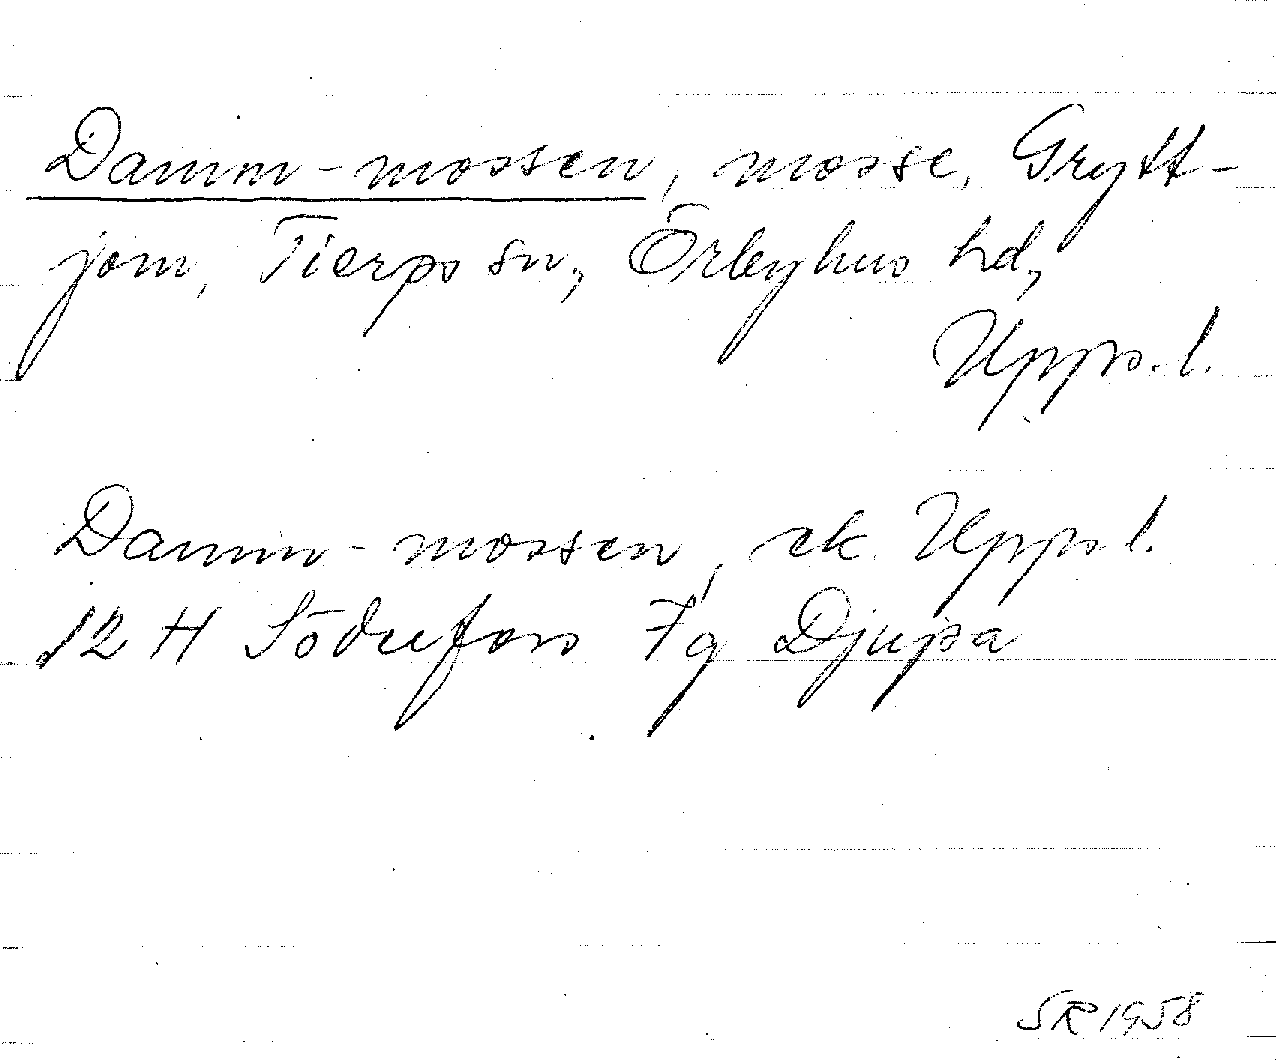 Damm-mossen, mosse, Grytt-
jom, Tierps sn, Örbyhus hd,
Upps. l.
Damm-mossen, ek. Upps l.
12 H Söderfors 7g Djupa
SR 1958